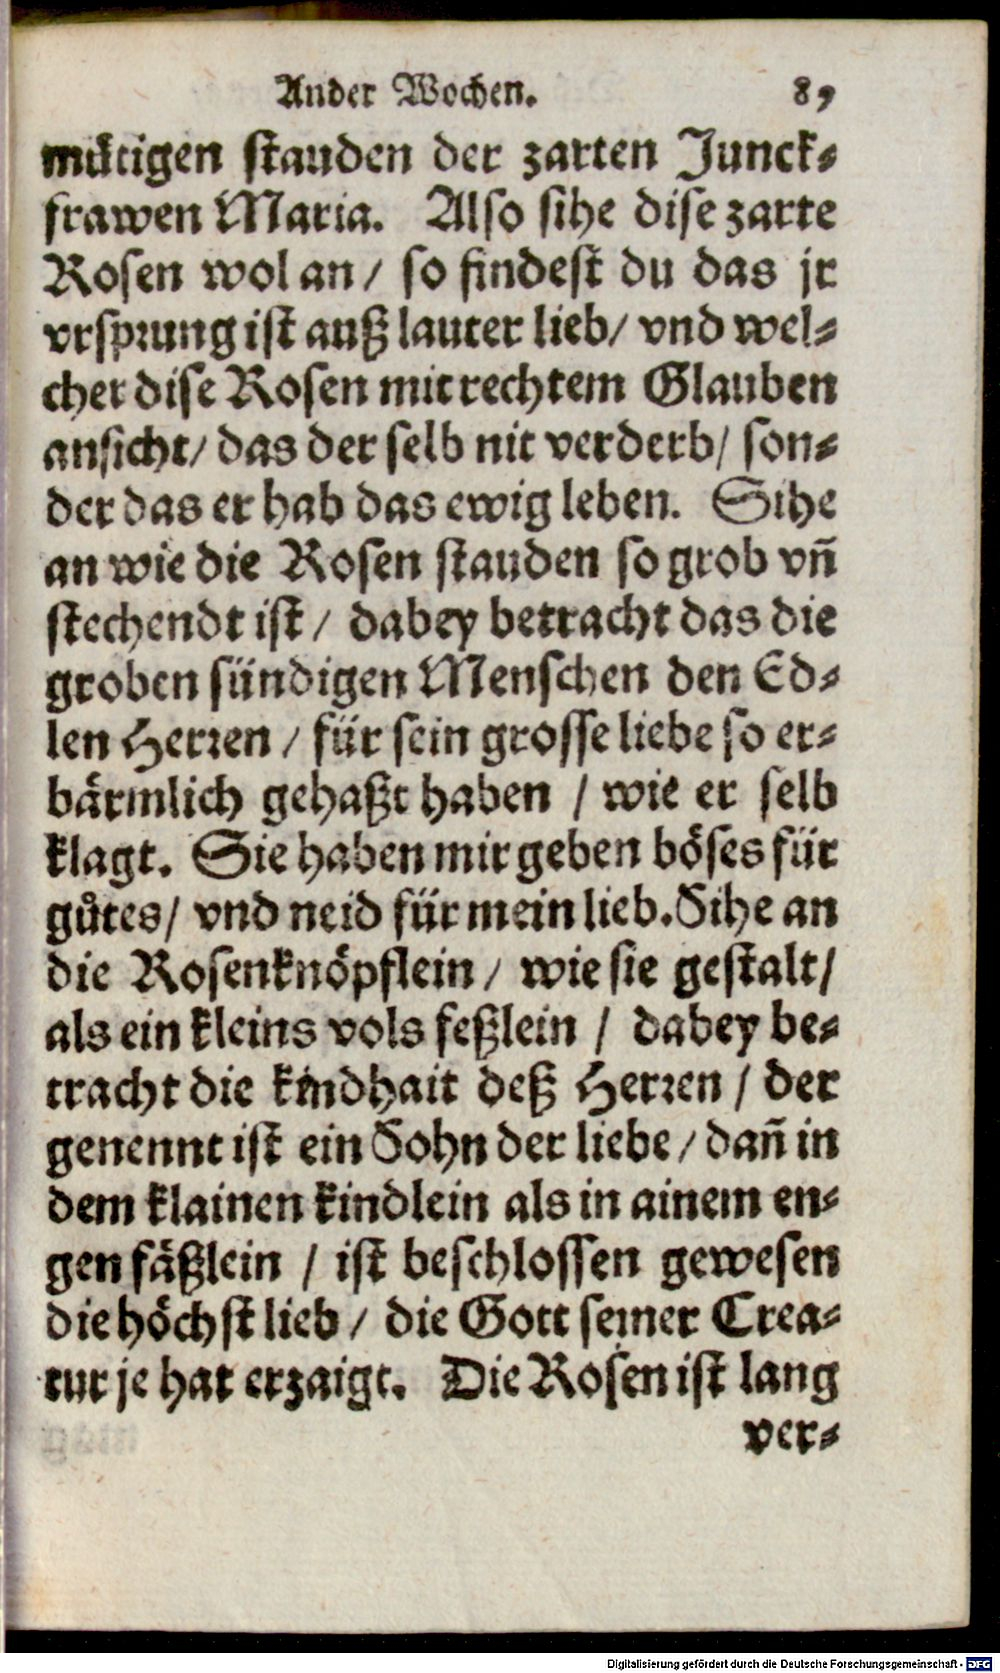 Ander Wochen. 89
mütigen stauden der zarten Junck⸗
frawen Maria. Also sihe dise zarte
Rosen wol an / so findest du das jr
vrsprung ist auß lauter lieb / vnd wel⸗
cher dise Rosen mit rechtem Glauben
ansicht / das der selb nit verderb / son⸗
der das er hab das ewig leben. Sihe
an wie die Rosen stauden so grob vñ
stechendt ist / dabey betracht das die
groben sündigen Menschen den Ed⸗
len Herren / für sein grosse liebe so er⸗
bärmlich gehaßt haben / wie er selb
klagt. Sie haben mir geben böses für
gůtes / vnd neid für mein lieb. Sihe an
die Rosenknöpflein / wie sie gestalt /
als ein kleins vols feßlein / dabey be⸗
tracht die kindhait deß Herren / der
genennt ist ein Sohn der liebe / dañ in
dem klainen kindlein als in ainem en⸗
gen fäßlein / ist beschlossen gewesen
die höchst lieb / die Gott seiner Crea⸗
tur je hat erzaigt. Die Rosen ist lang
ver⸗
Digitalisierung gefördert durch die Deutsche Forschungsgemeinschaft - DFG